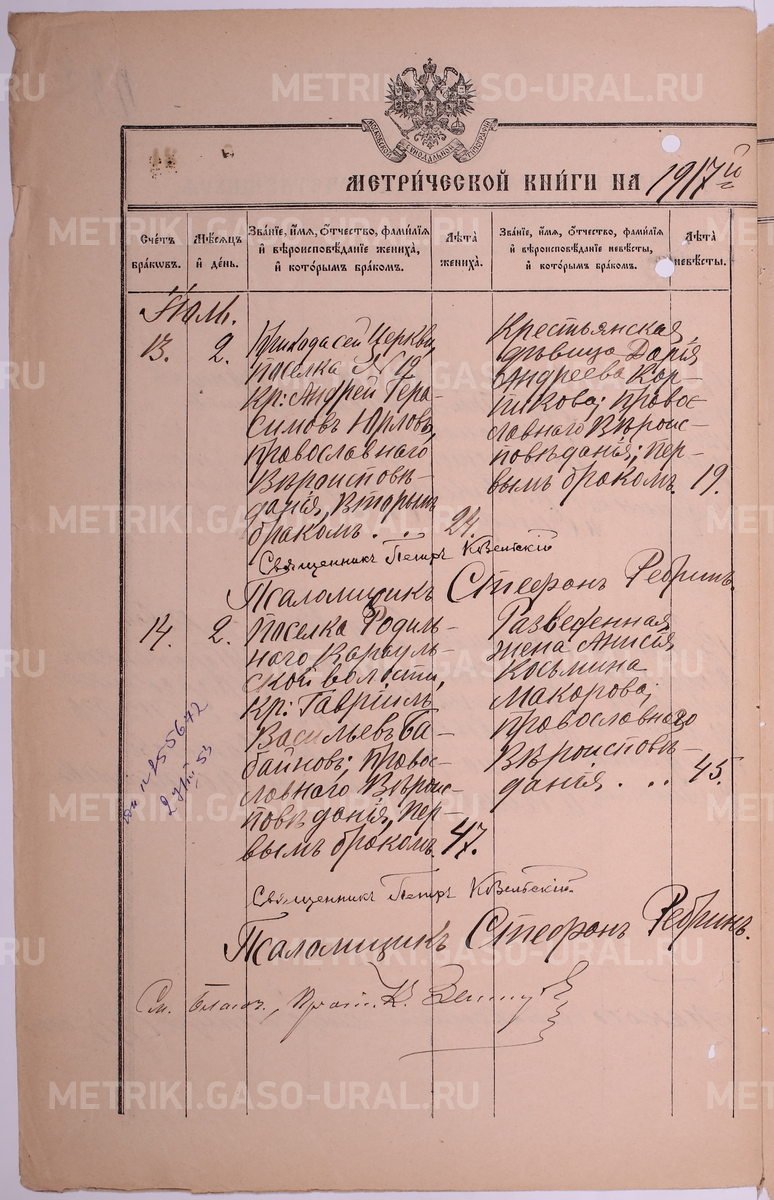 METRIKI.GASO-URAL.RU
МОСКОВСКОЙ СѴНОДАЛЬНОЙ ТИПОГРАФІИ
МЕТРИ́ЧЕСКОЙ КНИ́ГИ НА 1917й
Сче́тъ бра́кѡвъ.
Мѣ́сяцъ и҆ де́нь.
Зва́нїе, и҆́мѧ, ѻ҆́тчество, фами́лїѧ и҆ вѣроисповѣ́данїе жениха̀, и҆ кото́рымъ бра́комъ.
Лѣ́та жениха̀.
Зва́нїе, и҆́мѧ, ѻ҆́тчество, фами́лїѧ и҆ вѣроисповѣ́данїе невѣ́сты, и҆ кото́рымъ бра́комъ.
Лѣ́та невѣ́сты.
Іюль.
13. 2.
Прихода сей Церкви,
поселка № 12
кр: Андрей Гера-
симовъ Юрловъ,
православнаго
Вѣроисповѣ-
данія, Вторымъ
бракомъ . . . 24.
Крестьянская
дѣвица Дарія
Андреева Кор-
никова; Правос-
лавнаго Вѣроис-
повѣданія; пер-
вымъ бракомъ. 19.
Священникъ Петръ
Псаломщикъ Стефанъ Ребринъ.
14. 2.
Поселка Родиль-
наго Карауль-
ской волости,
кр: Гавріилъ
Васильевъ Ба-
байновъ; Правос-
лавнаго Вѣроис-
повѣданія, пер-
вымъ бракомъ. 47.
Разведенная
жена Анисія
Косьмина
Макарова;
православнаго
Вѣроисповѣ-
данія . . . 45.
№ 255672
53
Священникъ Петръ
Псаломщикъ Стефанъ Ребринъ.
См. Благоч., Прот.